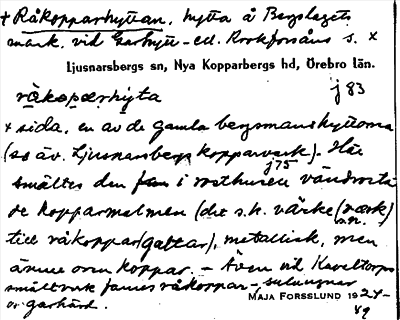 + Råkopparhyttan, hytta å Bergslagets
mark, vid Garhytt- ed. Rorkforsåns s. x
Ljusnarsbergs sn, Nya Kopparbergs hd, Örebro län.
råkopærhyta j 83
x sida, en av de gamla bergsmanshyttorna
(se äv. Ljusnarsbergs kopparverk). Här
j 75
smältes den i rosthusen vändrosta
de kopparmalmen (det s.k. värke (värk)
s.n.
till råkoppar (gattar), metallisk, men
ännu oren koppar. – Även vid Kaveltorps
smältverk fanns råkoppar-, sulugnar
o. garhärd.
MAJA FORSSLUND 1924-
89